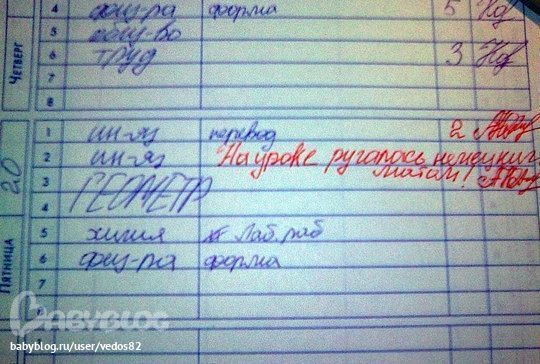 4 физ-ра форма 5
5 общ-во
6 труд 3
7
8
ЧЕТВЕРГ
1 ин-яз перевод 2
2 ин-яз На уроке ругалась немецким
матам!
3 ГЕОМЕТР
4
5 химия лаб. раб
6 физ-ра форма
7
20
ПЯТНИЦА
BABYBLOG
babyblog.ru/user/vedos82